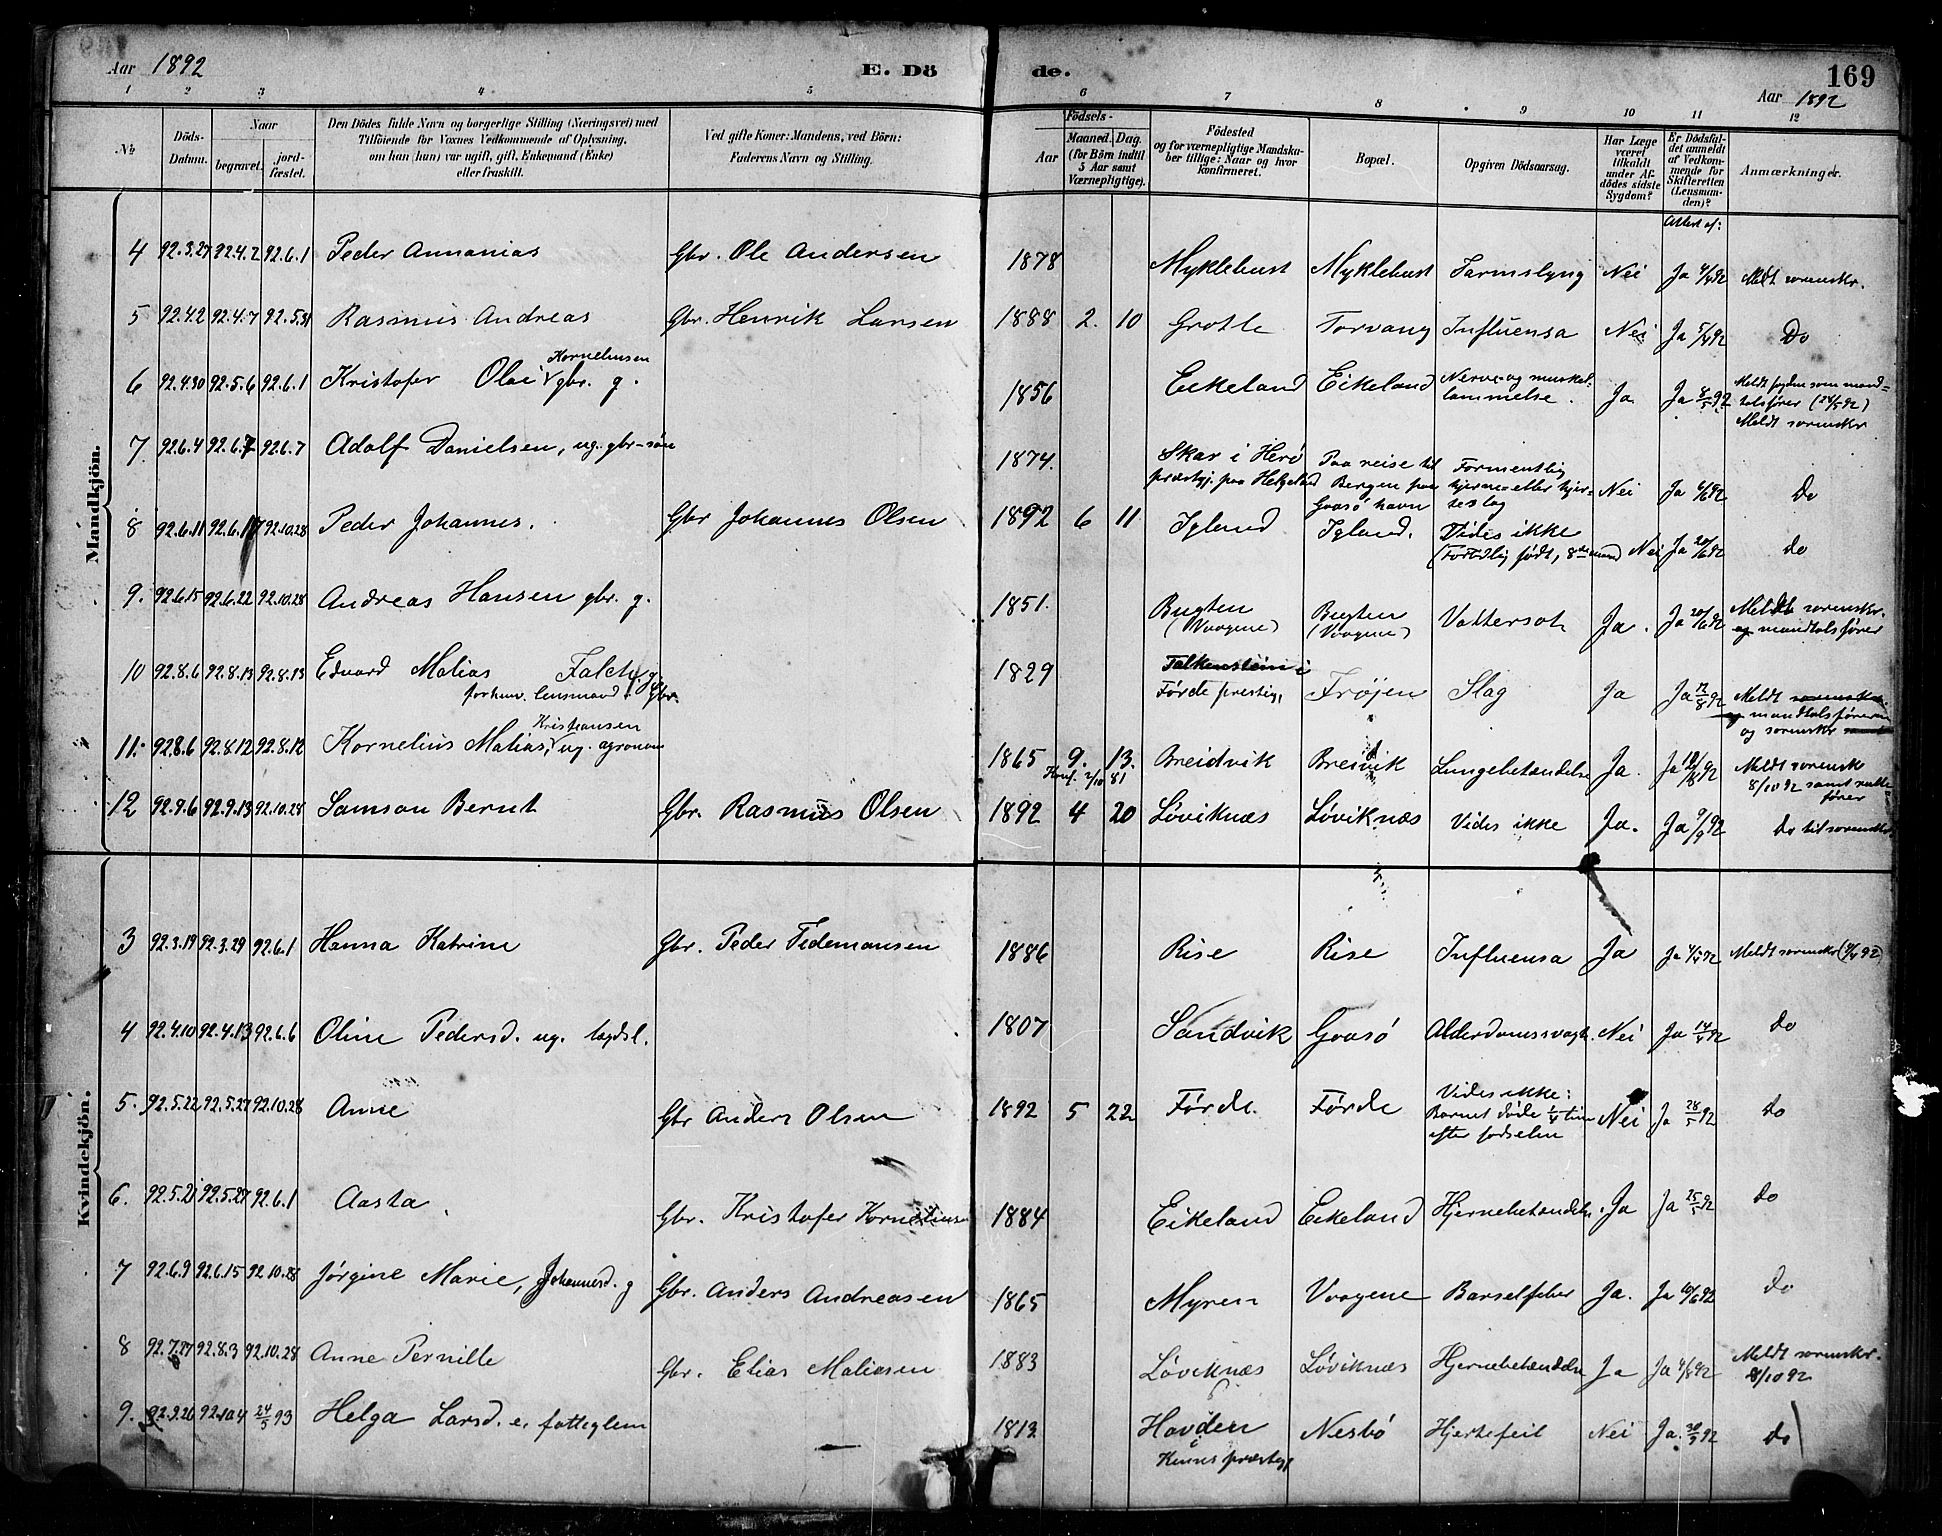 Aar 1892
E. Döde.
169
Aar 1892
1 2 3 4 5 6 7 8 9 10 11 12
No
Döds-Datum.
Naar
begravet.
jordfæstet.
Den Dödes fulde Navn og borgerlige Stilling (Næringsvei) med
Tilföiende for Voxnes Vedkommende af Oplysning,
om han (hun) var ugift, gift, Enkemand (Enke)
eller fraskilt.
Ved gifte Koner: Mandens, ved Börn:
Faderens Navn og Stilling.
Födsels-
Aar
Maaned. Dag.
(for Börn indtil
5 Aar samt
Værnepligtige).
Födested
og for værnepligtige Mandska-
ber tillige: Naar og hvor
konfirmeret.
Bopæl.
Opgiven Dödsaarsag.
Har Læge
været
tilkaldt
under Af-
dödes sidste
Sygdom?
Er Dödsfal-
det anmeldt
af Vedkom-
mende for
Skifteretten
(Lensman-
den)?
Anmærkninger.
Attest af:
Mandkjön.
4 92.3.27 92.4.2 92.6.1 Peder Annanias Gbr. Ole Andersen 1878 Myklebust Myklebust Tarmslyng Nei Ja 4/4 92 Meldt sorenskr.
5 92.4.2 92.4.7 92.5.31 Rasmus Andreas Gbr. Henrik Larsen 1888 2. 10 Grotle Torvang Influensa Nei Ja 5/4 92 Do
Korneliusen
6 92.4.30 92.5.6 92.6.1 Kristofer Olai gbr. g. 1856 Eikeland Eikeland Nerve- og muskel-
lammelse. Ja Ja 8/5 92 Meldt fogden som mand-
talsfører (24/5 92)
Meldt sorenskr
7. 92.6.4 92.6.7 92.6.7 Adolf Danielsen, ug. gbr-søn 1874. Skar i Herö
præstgj. paa Helgeland Paa reise til
Bergen paa
Gaasö havn Formentlig
hjerne- eller hjer-
teslag Nei Ja 6/6 92 Do
8 92.6.11 92.6.17 92.10.28 Peder Johannes. Gbr Johannes Olsen 1892 6 11 Igland Igland. Vides ikke
(Fortidlig født, 8de maaned Nei Ja 20/6 92 do
9. 92.6.15 92.6.22 92.10.28 Andreas Hansen gbr. g. 1851. Bugten
(Vaagene) Bugten
(Vaagene) Vattersot Ja. Ja 20/6 92 Meldt sorenskr.
og mandtalsfører
10 92.8.6 92.8.13 92.8.13 Edvard Matias Falck, g,
forhenv. lensmand, gbr. 1829 Falkenstein i
Førde prestgj, Frøjen Slag Ja Ja 12/8 92 Meldt sorenskr.
og mandtalsføreren
og sorenskr
Kristiansen
11. 92.8.6 92.8.12 92.8.12 Kornelius Matias, ug. agronom 1865 9. 13.
Konf. 2/10 81 Breidvik Breidvik Lungebetændelse Ja. Ja 12/8 92 Meldt sorensk
8/10 92 samt rulle-
fører
12 92.9.6 92.9.13 92.10.28 Samson Bernt Gbr. Rasmus Olsen 1892 4 20 Løviknæs Løviknæs Vides ikke Ja. Ja 9/9 92 Do til sorenskr
Kvindekjön.
3 92.3.19 92.3.29 92.6.1 Hanna Katrine Gbr. Peder Tidemansen 1886 Rise Rise Influensa Ja Ja 4/4 92 Meldt sorenskr (4/4 92)
4 92.4.10 92.4.13 92.6.6 Oline Pedersd. ug. lægdsl. 1807 Sandvik Gaasö Alderdomssvagh. Nei Ja 14/4 92 do
5. 92.5.22 92.5.27 92.10.28 Anne Gbr Anders Olsen 1892 5 22 Førde. Førde Vides ikke:
Barnet døde 1/4 time
efter fødselen Nei Ja 28/5 92 do
6. 92.5.21 92.5.27 92.6.1 Aasta Gbr. Kristofer Korneliusen 1884 Eikeland Eikeland Hjernebetændelse Ja Ja 25/5 92 do
7 92.6.9 92.6.15 92.10.28 Jørgine Marie, Johannesd. g Gbr. Anders Andreasen 1865 Myren Vaagene Barselfeber Ja. Ja 10/6 92 do
8 92.7.27 92.8.3 92.10.28 Anne Pernille Gbr. Elias Matiesen 1883 Løviknæs Løviknæs Hjernebetændelse Ja Ja 4/8 92 Meldt sorenskr.
8/10 92
9. 92.9.26 92.10.4 24/5 93 Helga Larsd. e. fatteglem 1812 Havden
i Kinns præstegj Nesbö Hjertefeil Nei Ja 30/9 92 do